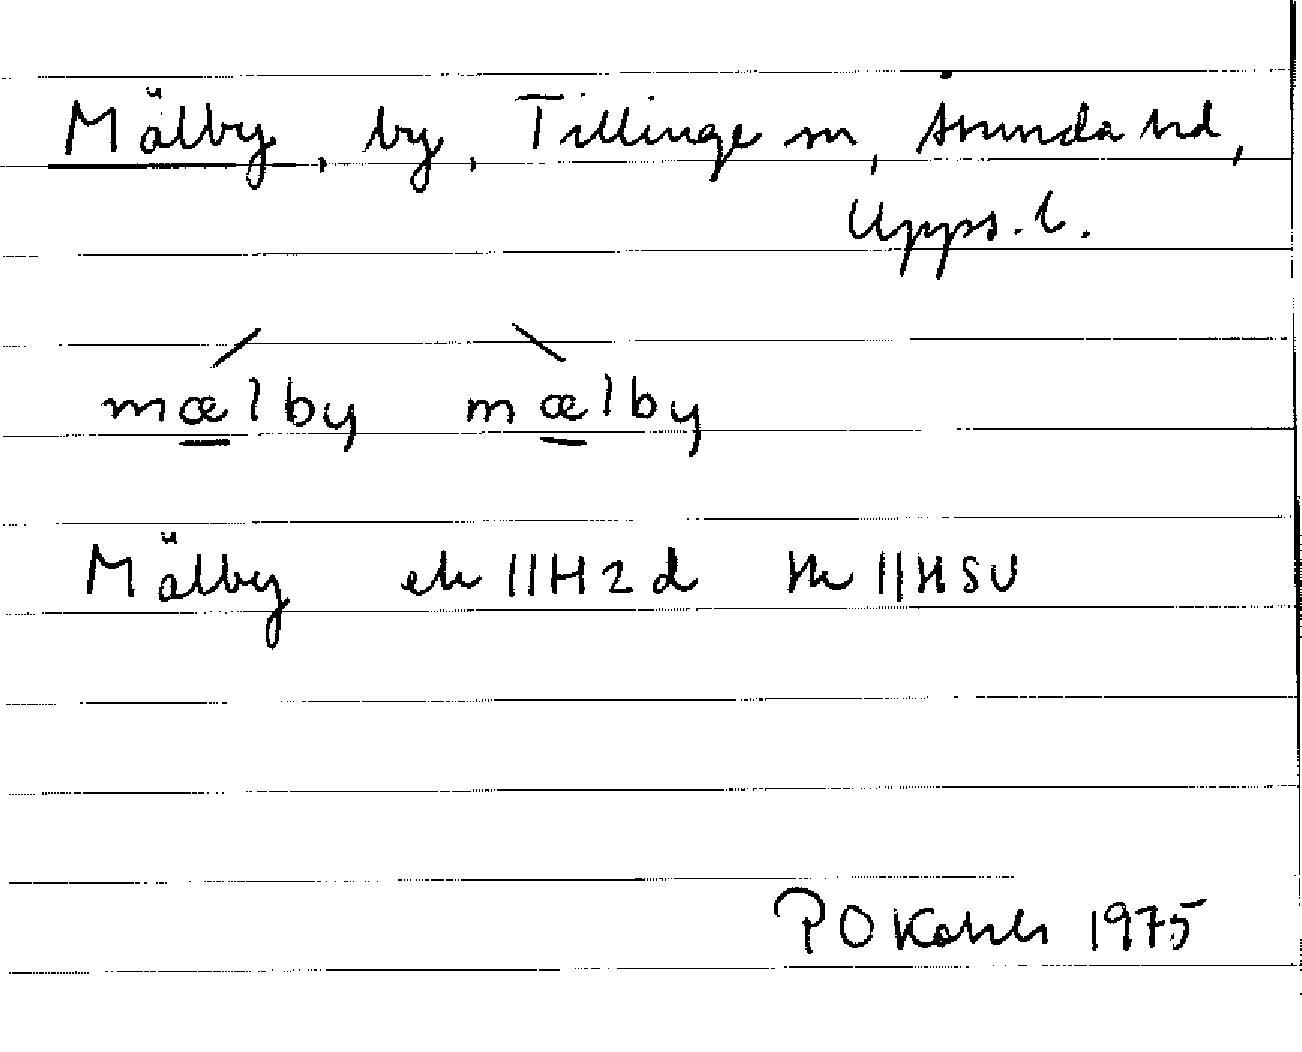 Mälby, by, Tillinge sn, Åsunda hd,
Upps. l.
mælby mælby
Mälby ek 11H2d hk 11HSV
P O
1975